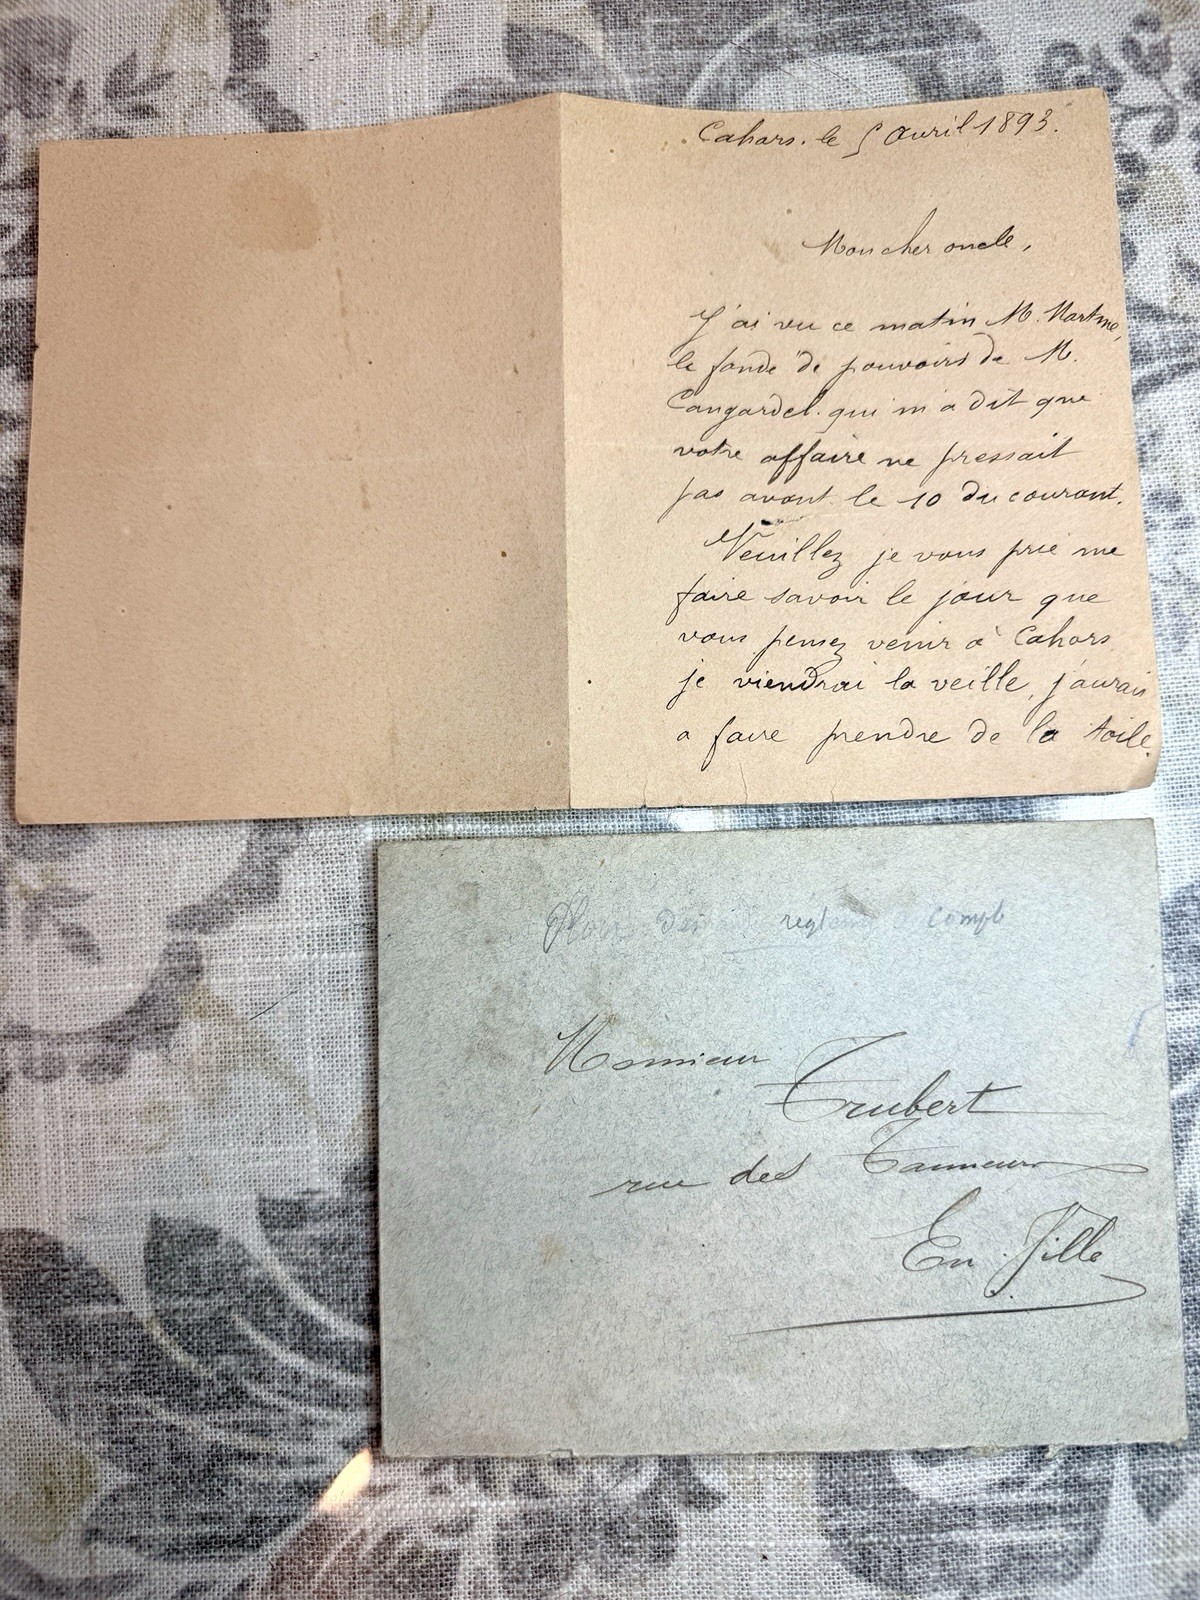 Cahors. le 5 Avril 1893.
Mon cher oncle,
J'ai vu ce matin M.
le fondé de pouvoirs de M.
Cangardel. qui m'a dit que
votre affaire ne pressait
pas avant le 10 du courant.
Veuillez je vous prie me
faire savoir le jour que
vous pensez venir à Cahors
je viendrai la veille, j'aurais
a faire prendre de la toile.
compt
Monsieur
Trubert
rue des Tanneurs
En Ville